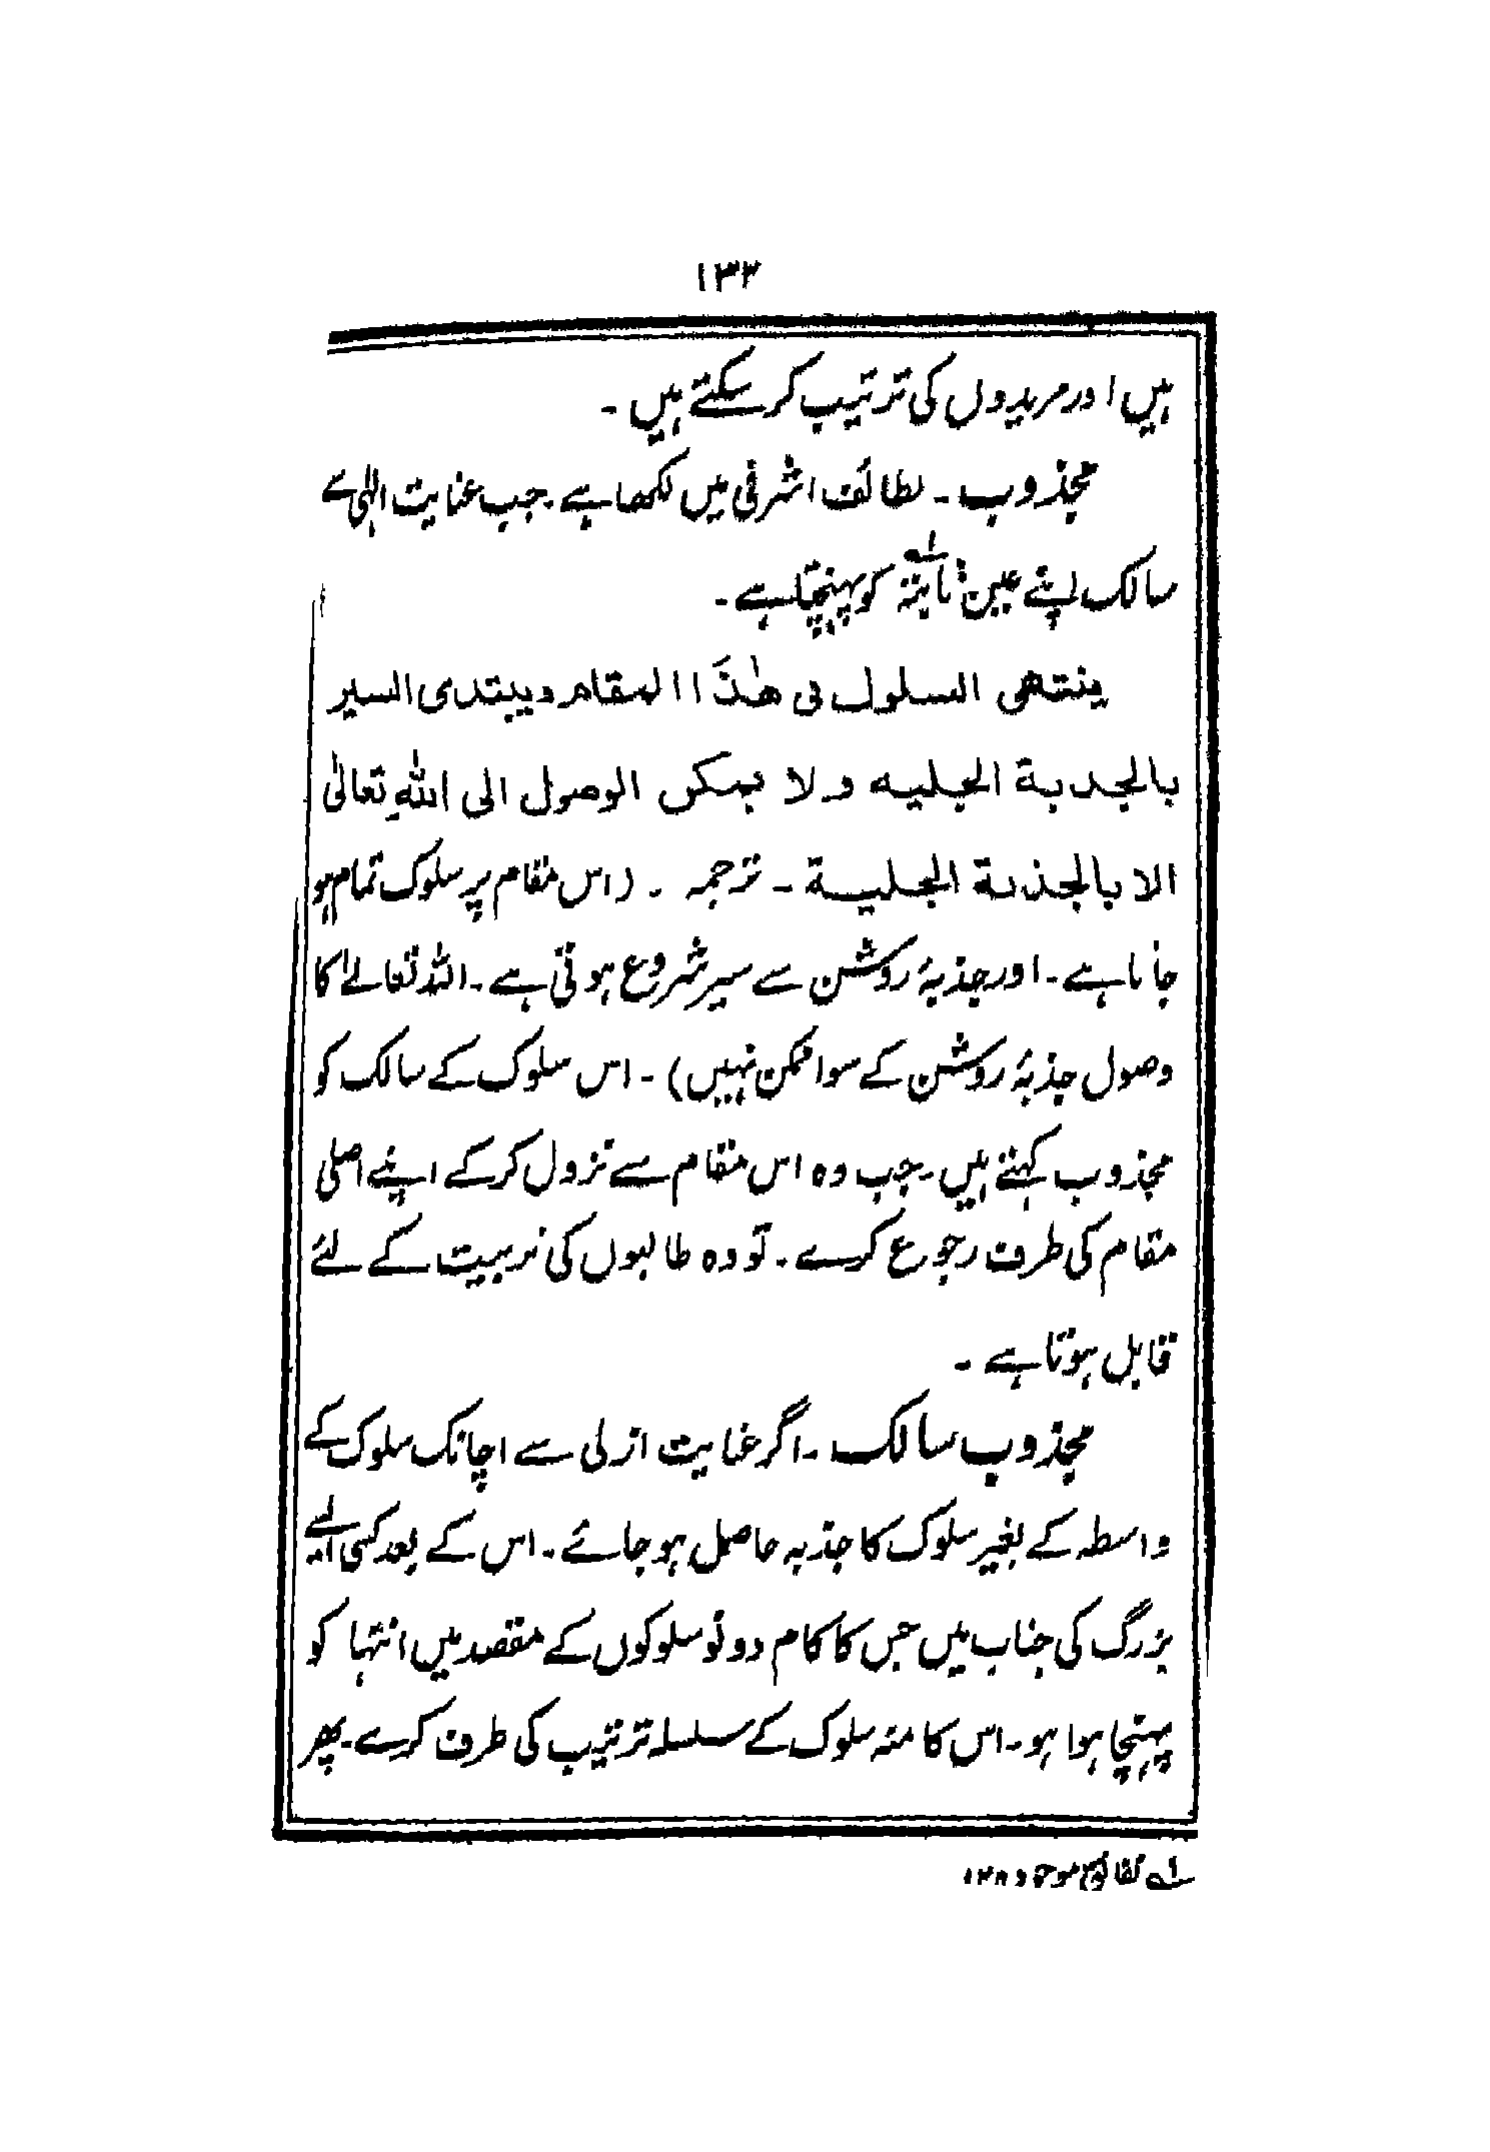 ۱۳۳
ہیں اور مریدوں کی ترتیب کر سکتے ہیں ۔
مجذوب ۔ لطائف اشرفی میں لکھا ہے ۔ جب عنایت الٰہی سے
سالک اپنے عین ثابتہ لہ کو پہنچتا ہے ۔
ینتھی السلول فی ھٰذَا المقام ویبتدی السیر
بالجدبة الجلیه و لا یمکن الوصول الی اللّٰهِ تعالیٰ
الا بالجذبة الجلیة ۔ ترجمہ ۔ (اس مقام پر سلوک تمام ہو
جاتا ہے ۔ اور جذبۂ روشن سے سیر شروع ہوتی ہے ۔ اللہ تعالےٰ کا
وصول جذبۂ روشن کے سوا ممکن نہیں) ۔ اس سلوک کے سالک کو
مجذوب کہتے ہیں ۔ جب وہ اس مقام سے نزول کر کے اپنے اصلی
مقام کی طرف رجوع کرے ۔ تو وہ طالبوں کی تربیت کے لئے
قابل ہوتا ہے ۔
مجذوب سالک ۔ اگر عنایت ازلی سے اچانک سلوک کے
واسطہ کے بغیر سلوک کا جذبہ حاصل ہو جائے ۔ اس کے بعد کسی ایسے
بزرگ کی جناب میں جس کا کام دونو سلوکوں کے مقصد میں انتہا کو
پہنچا ہوا ہو ۔ اس کا منہ سلوک کے سلسلہ ترتیب کی طرف کرے ۔ پھر
لہ